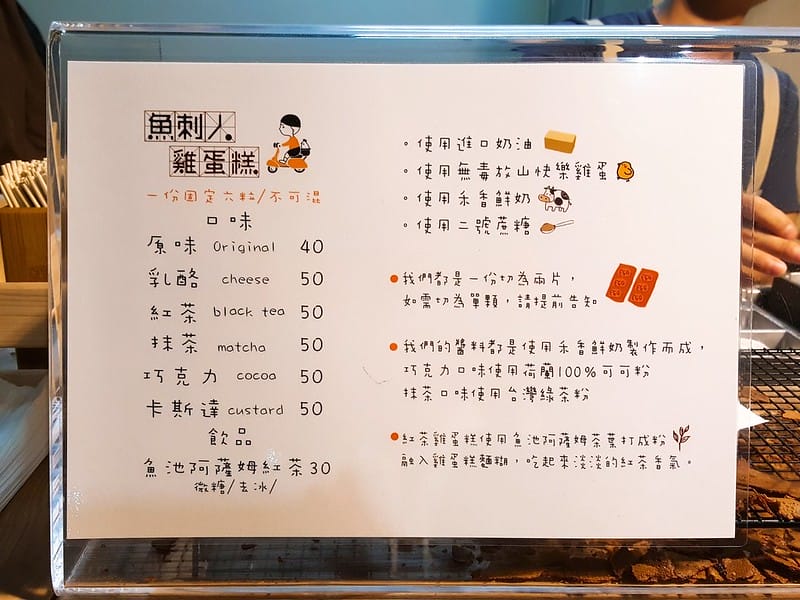 魚刺人
雞蛋糕
一份固定六粒/不可混
口味
原味 Original 40
乳酪 cheese 50
紅茶 black tea 50
抹茶 matcha 50
巧克力 cocoa 50
卡斯達 custard 50
飲品
魚池阿薩姆紅茶30
微糖/去冰/
。使用進口奶油
。使用無毒放山快樂雞蛋
。使用禾香鮮奶
。使用二號蔗糖
●我們都是一份切為兩片，
如需切為單顆，請提前告知
●我們的醬料都是使用禾香鮮奶製作而成，
巧克力口味使用荷蘭100%可可粉
抹茶口味使用台灣綠茶粉
●紅茶雞蛋糕使用魚池阿薩姆茶葉打成粉
融入雞蛋糕麵糊，吃起來淡淡的紅茶香氣。